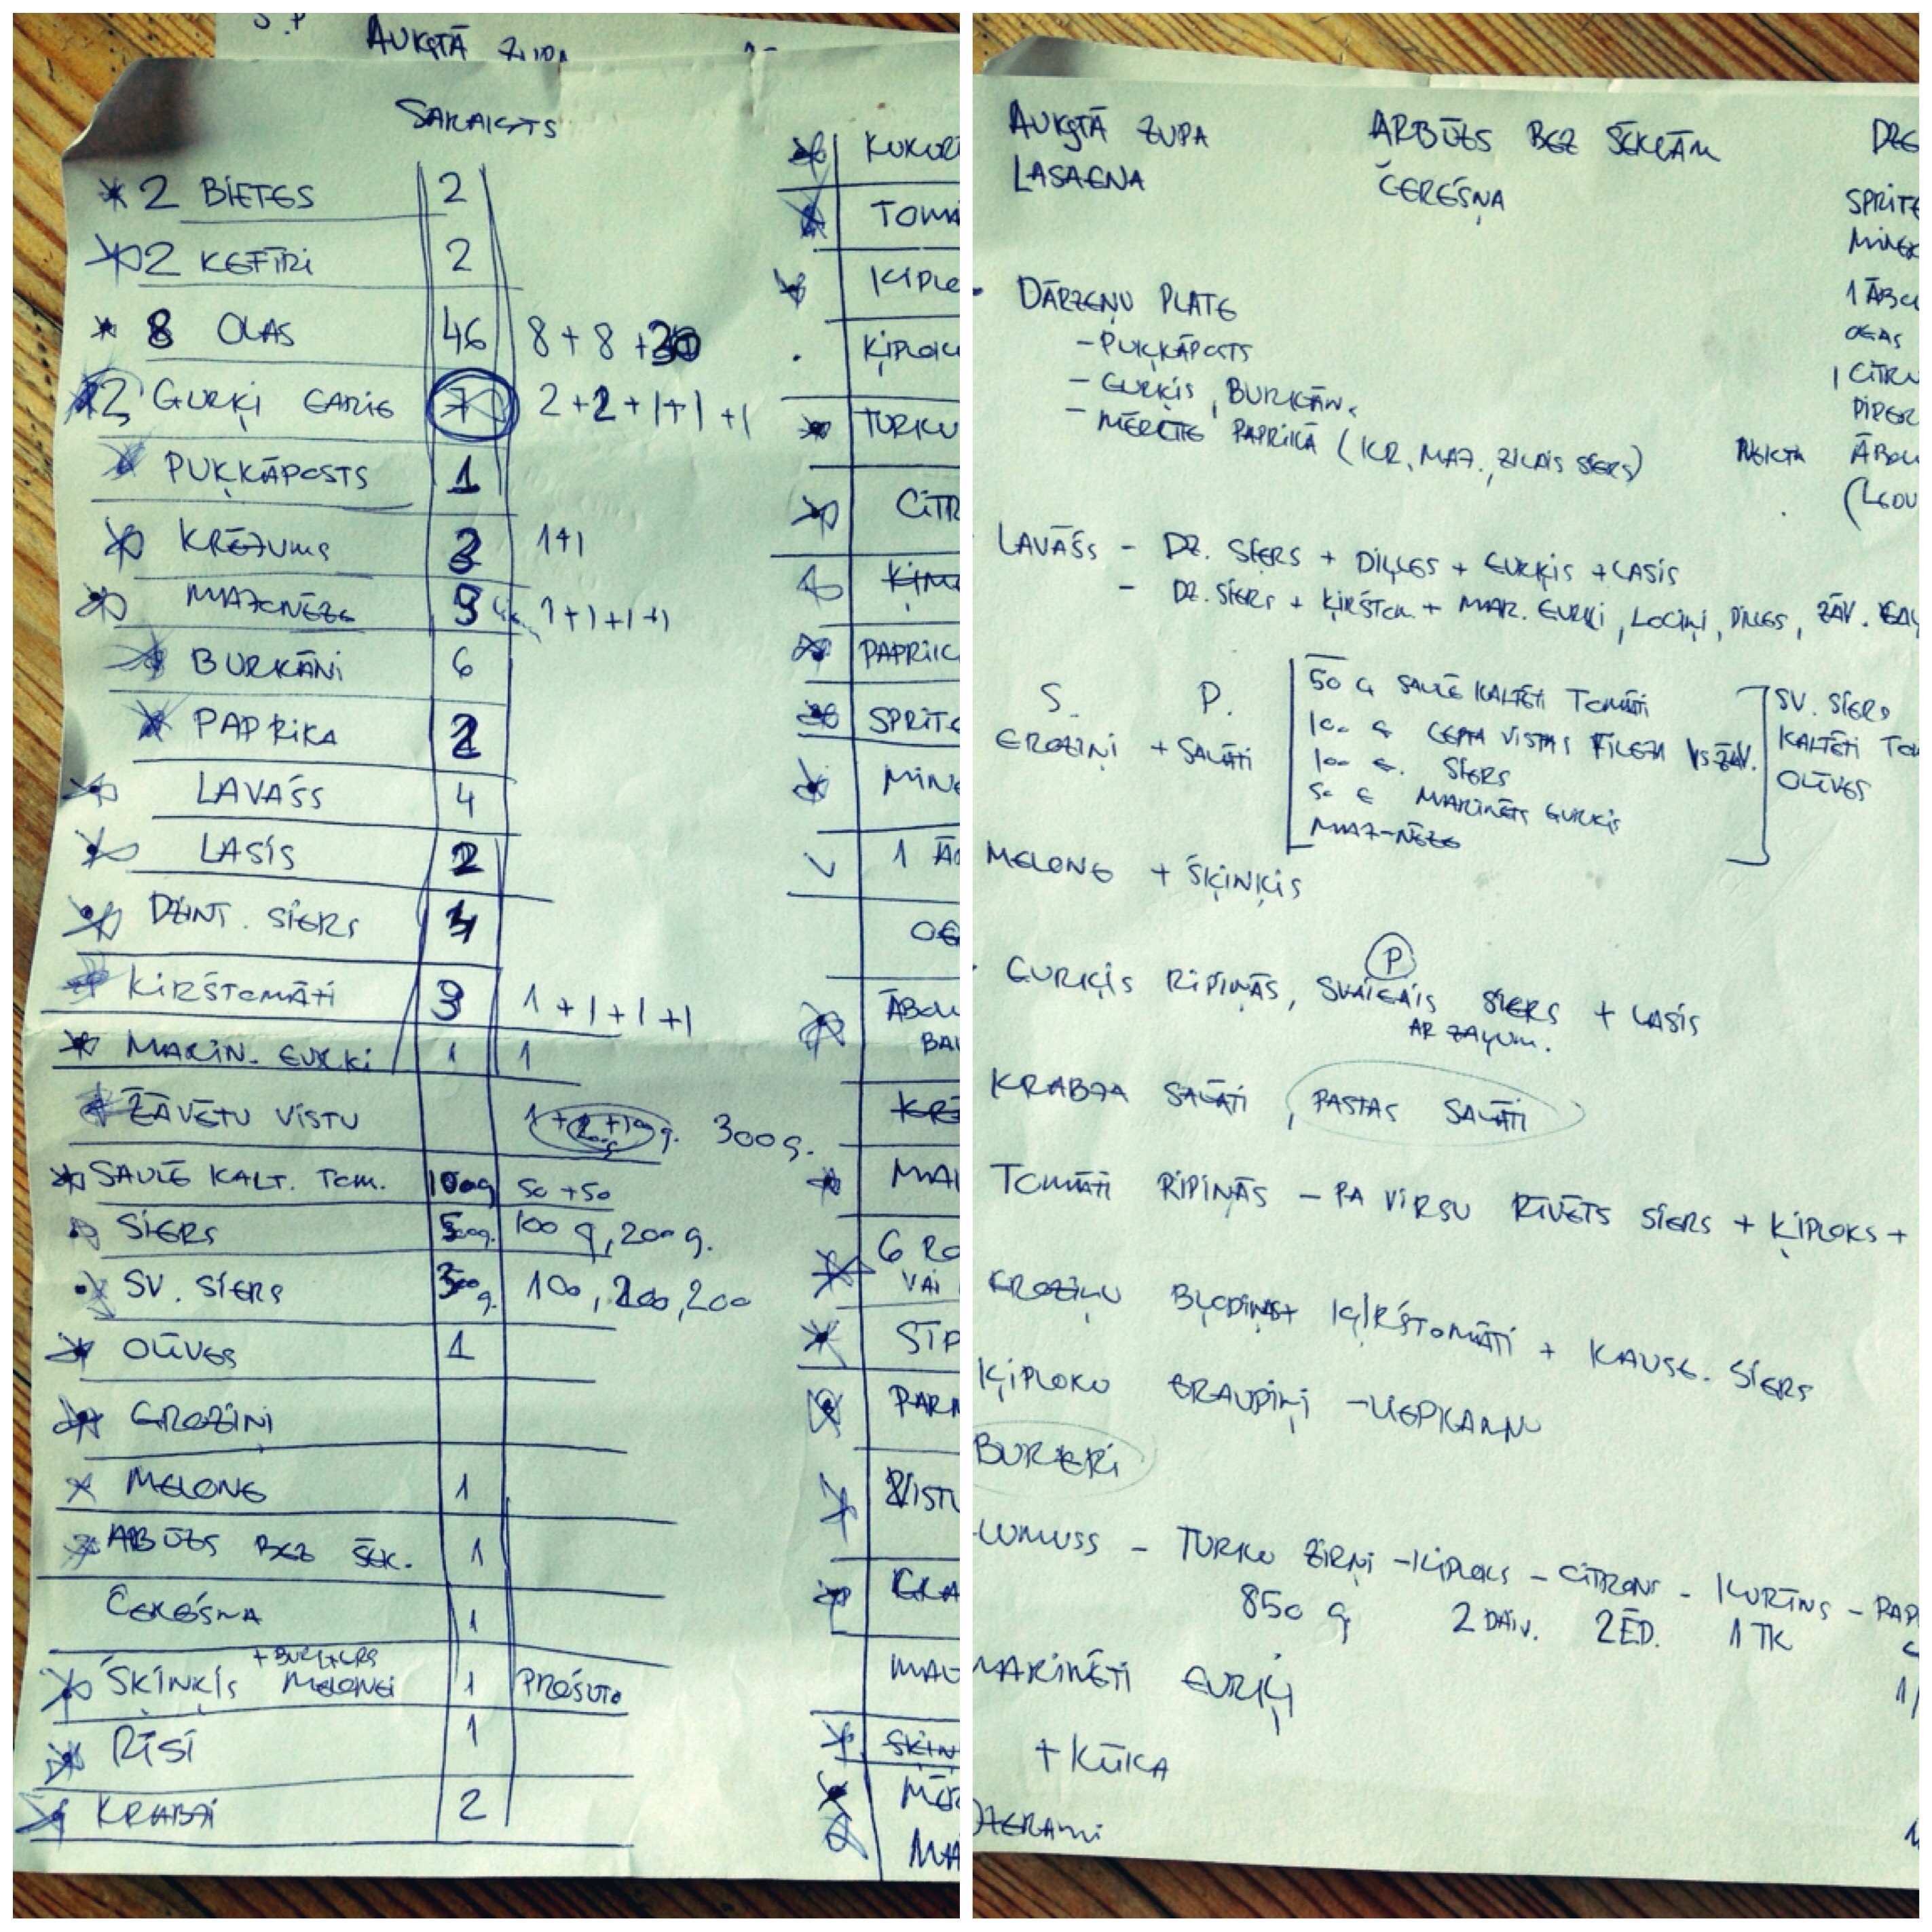 AUKSTĀ
SARAKSTS
2 BIETES 2
2 KEFĪRI 2
8 OLAS 46 8 + 8 + 30
2 GURĶI GARIE 7 2 + 2 + 1 + 1 + 1
PUĶKĀPOSTS 1
KRĒJUMS 1+1
MAJONĒZE 1+1+1+1
BURKĀNI 6
PAPRIKA 2
LAVAŠS 4
LASIS 2
DZINT. SIERS
ĶIRŠTOMĀTI 3 1 + 1 + 1 + 1
MARIN. GURĶI 1 1
ŽĀVĒTU VISTU 300 g.
SAULĒ KALT. TOM. 100g 50 + 50
SIERS 100 g, 200 g.
SV. SIERS 100, 200, 200
OLĪVES 1
GROZIŅI
MELONE 1
ARBŪZS BEZ SĒK. 1
ČEREŠŅA 1
+ BURGERS
ŠĶIŅĶIS MELONEI 1 PROŠUTO
RĪSI 1
KRABJI 2
KUKUR
TOMĀ
ĶIPLO
ĶIPLOK
TURKU
CITR
ĶIM
PAPRIK
SPRITE
MINE
1 ĀB
OG
ĀBOL
BAL
KRĒ
MAI
6 RO
VAI
SĪP
PARM
VISTU
MĒR
MA
AUKSTĀ ZUPA
LASAGNA
ARBŪZS BEZ SĒKLĀM
ČEREŠŅA
DZE
SPRITE
MINER
1 ĀBO
OGAS
1 CITRO
PIPER
ĀBOL
(LEDU
DĀRZEŅU PLATE
- PUĶKĀPOSTS
- GURĶIS, BURKĀN.
- MĒRCĪTE PAPRIKĀ (KR, MAJ., ZILAIS SIERS)
LAVAŠS - DZ. SIERS + DILLES + GURĶIS + LASIS
- DZ. SIERS + ĶIRŠTOM + MAR. GURĶI, LOCIŅI, DILLES, ŽĀV. GAĻ
S. P.
GROZIŅI + SALĀTI
50 G SAULĒ KALTĒTI TOMĀTI
100 G CEPTA VISTAS FILEJA VS ŽĀV.
100 G. SIERS
50 G MARINĒTS GURĶIS
MAJ-NĒZE
SV. SIERS
KALTĒTI TOM
OLĪVES
MELONE + ŠĶIŅĶIS
P
GURĶIS RIPIŅĀS, SVAIGAIS SIERS + LASIS
AR ZAĻUM.
KRABJA SALĀTI, PASTAS SALĀTI
TOMĀTI RIPIŅĀS - PA VIRSU RĪVĒTS SIERS + ĶIPLOKS +
GROZIŅU BĻODIŅAS+ ĶIRŠTOMĀTI + KAUSĒ. SIERS
ĶIPLOKU GRAUDIŅI -
BURGERI
HUMUSS - TURKU ZIRŅI - ĶIPLOKS - CITRONS - KURĪNS - PAP
850 g 2 DAIV. 2 ĒD. 1 TK
MARINĒTI GURĶI
+ KŪKA
DZĒRAMI